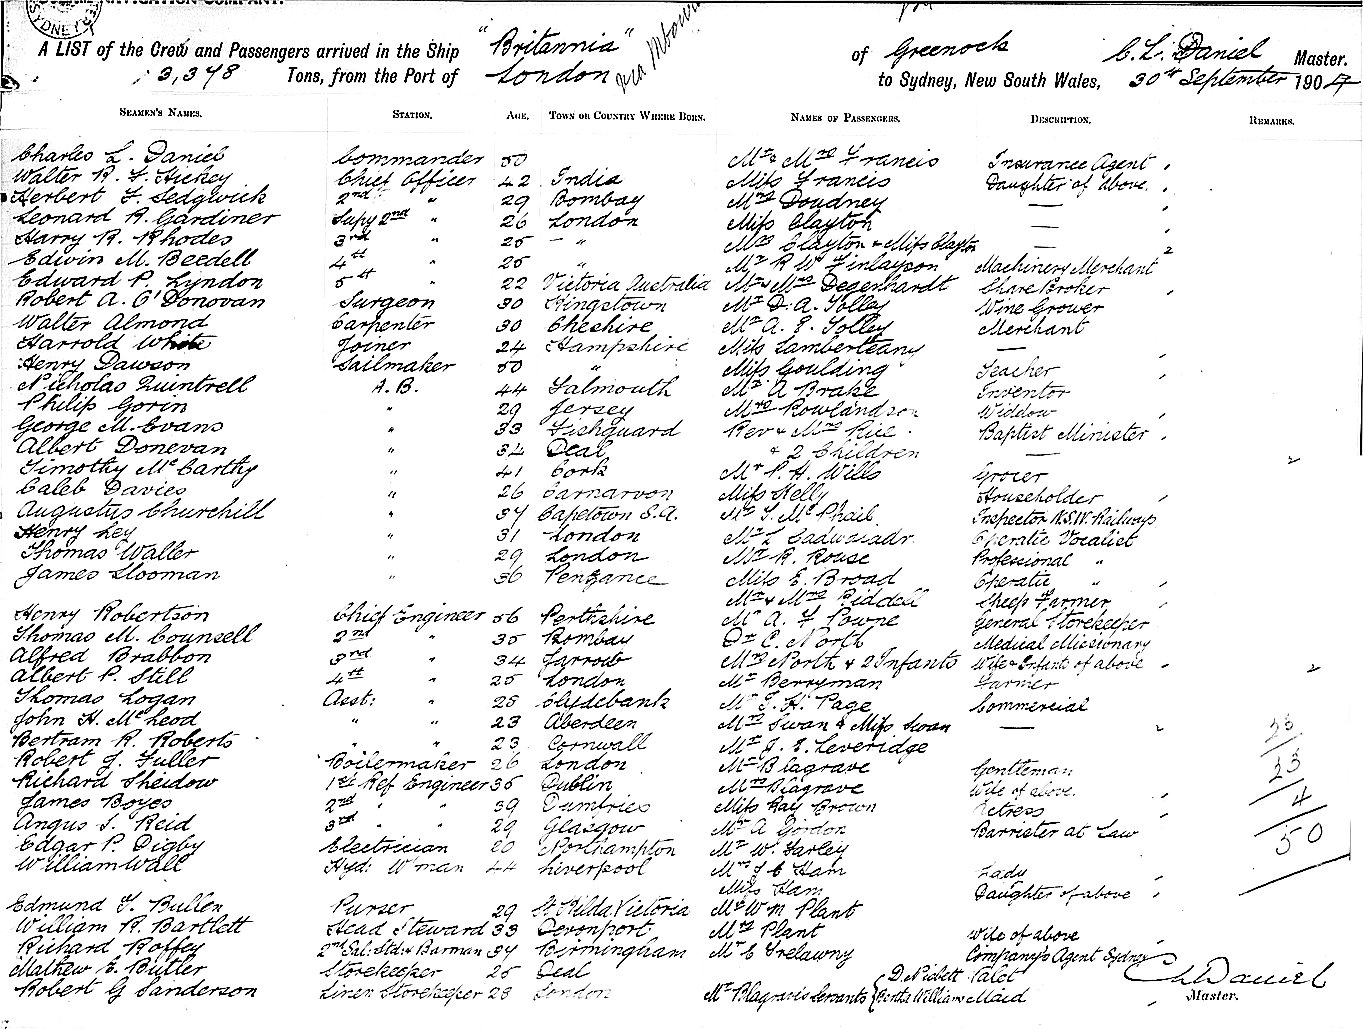 NAVIGATION COMPANY.
SYDNEY
A LIST of the Crew and Passengers arrived in the Ship "Britannia" of Greenock C. L. Daniel Master.
3,378 Tons, from the Port of London to Sydney, New South Wales, 30th September 1904
SEAMEN'S NAMES. STATION. AGE. TOWN OR COUNTRY WHERE BORN. NAMES OF PASSENGERS. DESCRIPTION. REMARKS.
Charles L. Daniel Commander 50 Mr & Mrs Francis Insurance Agent
Walter R. F. Hickey Chief Officer 42 India Miss Francis Daughter of above.
Herbert F. Sedgwick 2nd " 29 Bombay Mrs Doudney —
Leonard R. Gardiner Supy 2nd " 26 London Miss Clayton —
Harry R. Rhodes 3rd " 25 - " Mrs Clayton & Miss Clayton —
Edwin M. Beedell 4th " 25 " Mr R. W. Finlayson Machinery Merchant
Edward P. Lyndon 5th " 22 Victoria Australia Mr & Mrs Degenhardt Share Broker
Robert A. O'Donovan Surgeon 30 Kingstown Mr D. A. Tolley Wine Grower
Walter Almond Carpenter 30 Cheshire Mr A. E. Tolley Merchant
Harrold White Joiner 24 Hampshire Miss —
Henry Dawson Sailmaker 50 " Miss Goulding Teacher
Nicholas Quintrell A.B. 44 Falmouth Mr A Brake Inventor
Philip Gorin " 29 Jersey Mrs Rowlandson Widdow
George M. Evans " 33 Fishguard Rev & Mrs Rice Baptist Minister
Albert Donevan " 34 Deal & 2 Children —
Timothy McCarthy " 41 Cork Mr P. H. Wills Grocer
Caleb Davies " 26 Carnarvon Miss Kelly Householder
Augustus Churchill " 37 Capetown S.A. Mr McPhail Inspector N.S.W. Railways
Henry Ley " 31 London Mr L Operatic Vocalist
Thomas Waller " 29 London Mr R. Rouse Professional "
James Slooman " 36 Penzance Miss E. Broad Operatic "
Mr & Mrs Riddell Sheep Farmer
Henry Robertson Chief Engineer 56 Perthshire Mr A. F Towne General Storekeeper
Thomas M. Counsell 2nd " 35 Bombay Dr C. North Medical Missionary
Alfred Brabbon 3rd " 34 Jarrow Mrs North & 2 Infants Wife & Infant of above
Albert P. Still 4th " 25 London Mr Berryman Farmer
Thomas Logan Asst: " 25 Clydebank Mr Page Commercial
John H. McLeod " " 23 Aberdeen Mrs Swan & Miss Swan —
Bertram R. Roberts " " 23 Cornwall Mr Leveridge
Robert J. Fuller Boilermaker 26 London Mr Blagrave Gentleman
Richard Sheidow 1st Ref Engineer 35 Dublin Mrs Blagrave Wife of above.
James Boyes 2nd " " 39 Dumfries Miss Ray Brown Actress
Angus S. Reid 3rd " " 29 Glasgow Mr A Gordon Barrister at Law
Edgar P. Digby Electrician 20 Northampton Mr W. Farley
William Wall Hyd: W'man 44 Liverpool Mrs Ham Lady
Miss Ham Daughter of above
Edmund F. Bullen Purser 29 St Kilda Victoria Mr W M Plant
William R. Bartlett Head Steward 33 Devonport Mrs Plant Wife of above
Richard Roffey 2nd Sal. Std & Barman 34 Birmingham Mr E Trelawny Company's Agent Sydney
Mathew E. Butler Storekeeper 25 Deal D Nisbett Valet
Robert G Sanderson Linen Storekeeper 28 London Mr Blagraves Servants Bertha Williams Maid
23
23
4
50
C L Daniel
Master.